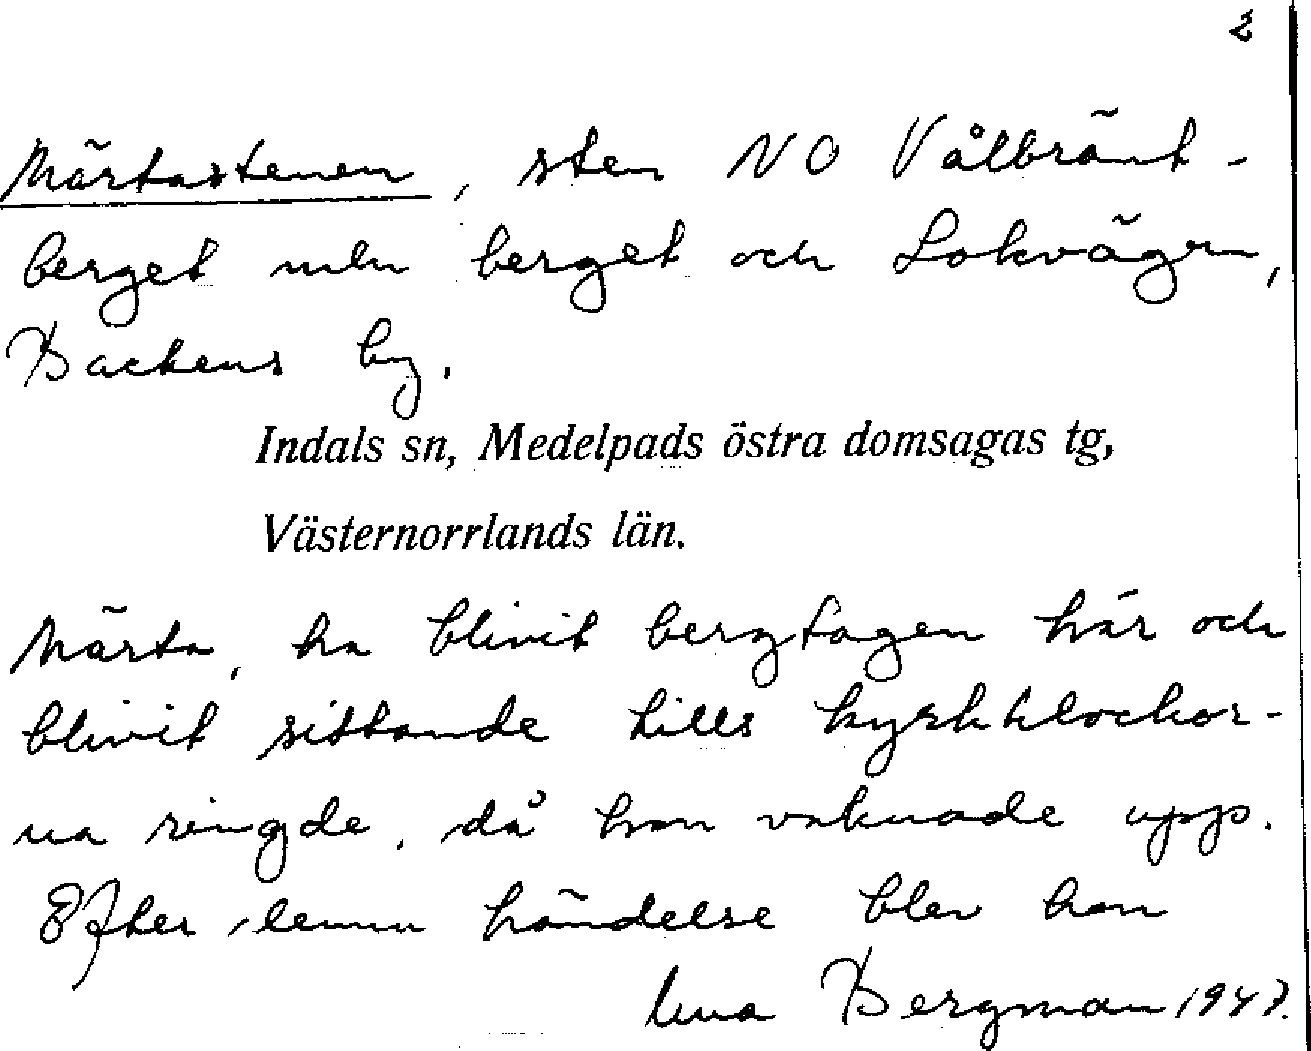 2
Märtastenen, sten NO Vålbränt-
berget mln berget och Lokvägen,
Backens by.
Indals sn, Medelpads östra domsagas tg,
Västernorrlands län.
Märta, ha blivit bergtagen här och
blivit sittande tills kyrkklockor-
na ringde, då hon vaknade upp.
Efter denna händelse blev hon
Bergman 1947.